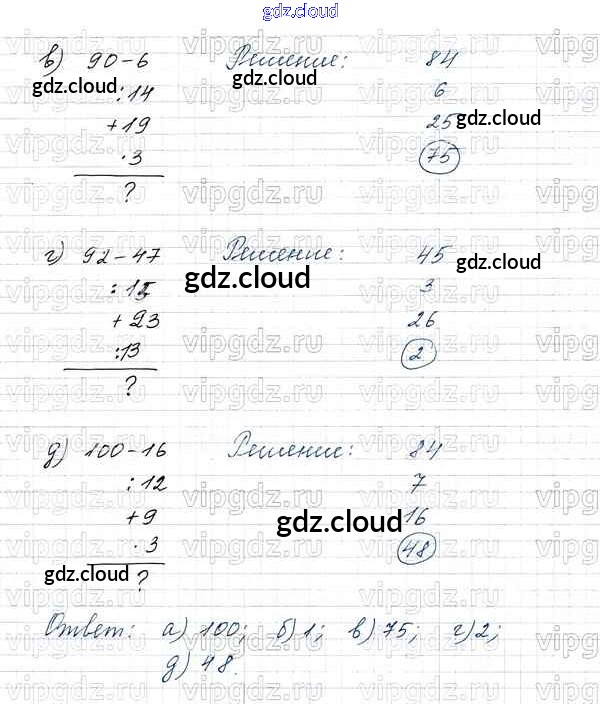 gdz.cloud
в) 90-6 Решение: 84
gdz.cloud :14 gdz.cloud 6
+19 25 gdz.cloud
·3 75
?
г) 92-47 Решение: 45
:15 gdz.cloud 3 gdz.cloud
+23 26
:13 2
?
д) 100-16 Решение: 84
:12 7
+9 gdz.cloud 16
·3 48
gdz.cloud ?
Ответ: а) 100; б) 1; в) 75; г) 2;
д) 48.